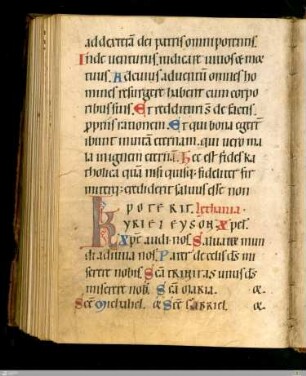 ad dexterã dei patris omnipotentis.
Inde venturus iudicare uiuos & mor
tuos. Ad cuius aduentũ omnes ho
mines resurgere habent cum corpo
ribus suis. Et reddituri sẽ de factis
propriis rationem. Et qui bona egerũt
ibunt in uitã eternam. qui uero ma
la in ignem eternũ. Hec est fides ka
tholica quã nisi quisq; fideliter fir
miterq; crediderit saluus esse non
POTERIT. Lethania.
KYRIELEYSON. Xpe.
Xpe audi nos. Saluator mun
di adiuua nos. Pater de celis ds mi
serere nobis. Scã TRINITAS unus ds
miserere nob. Scã MARIA. or.
Scẽ Michahel. or Scẽ GABRIEL. or.